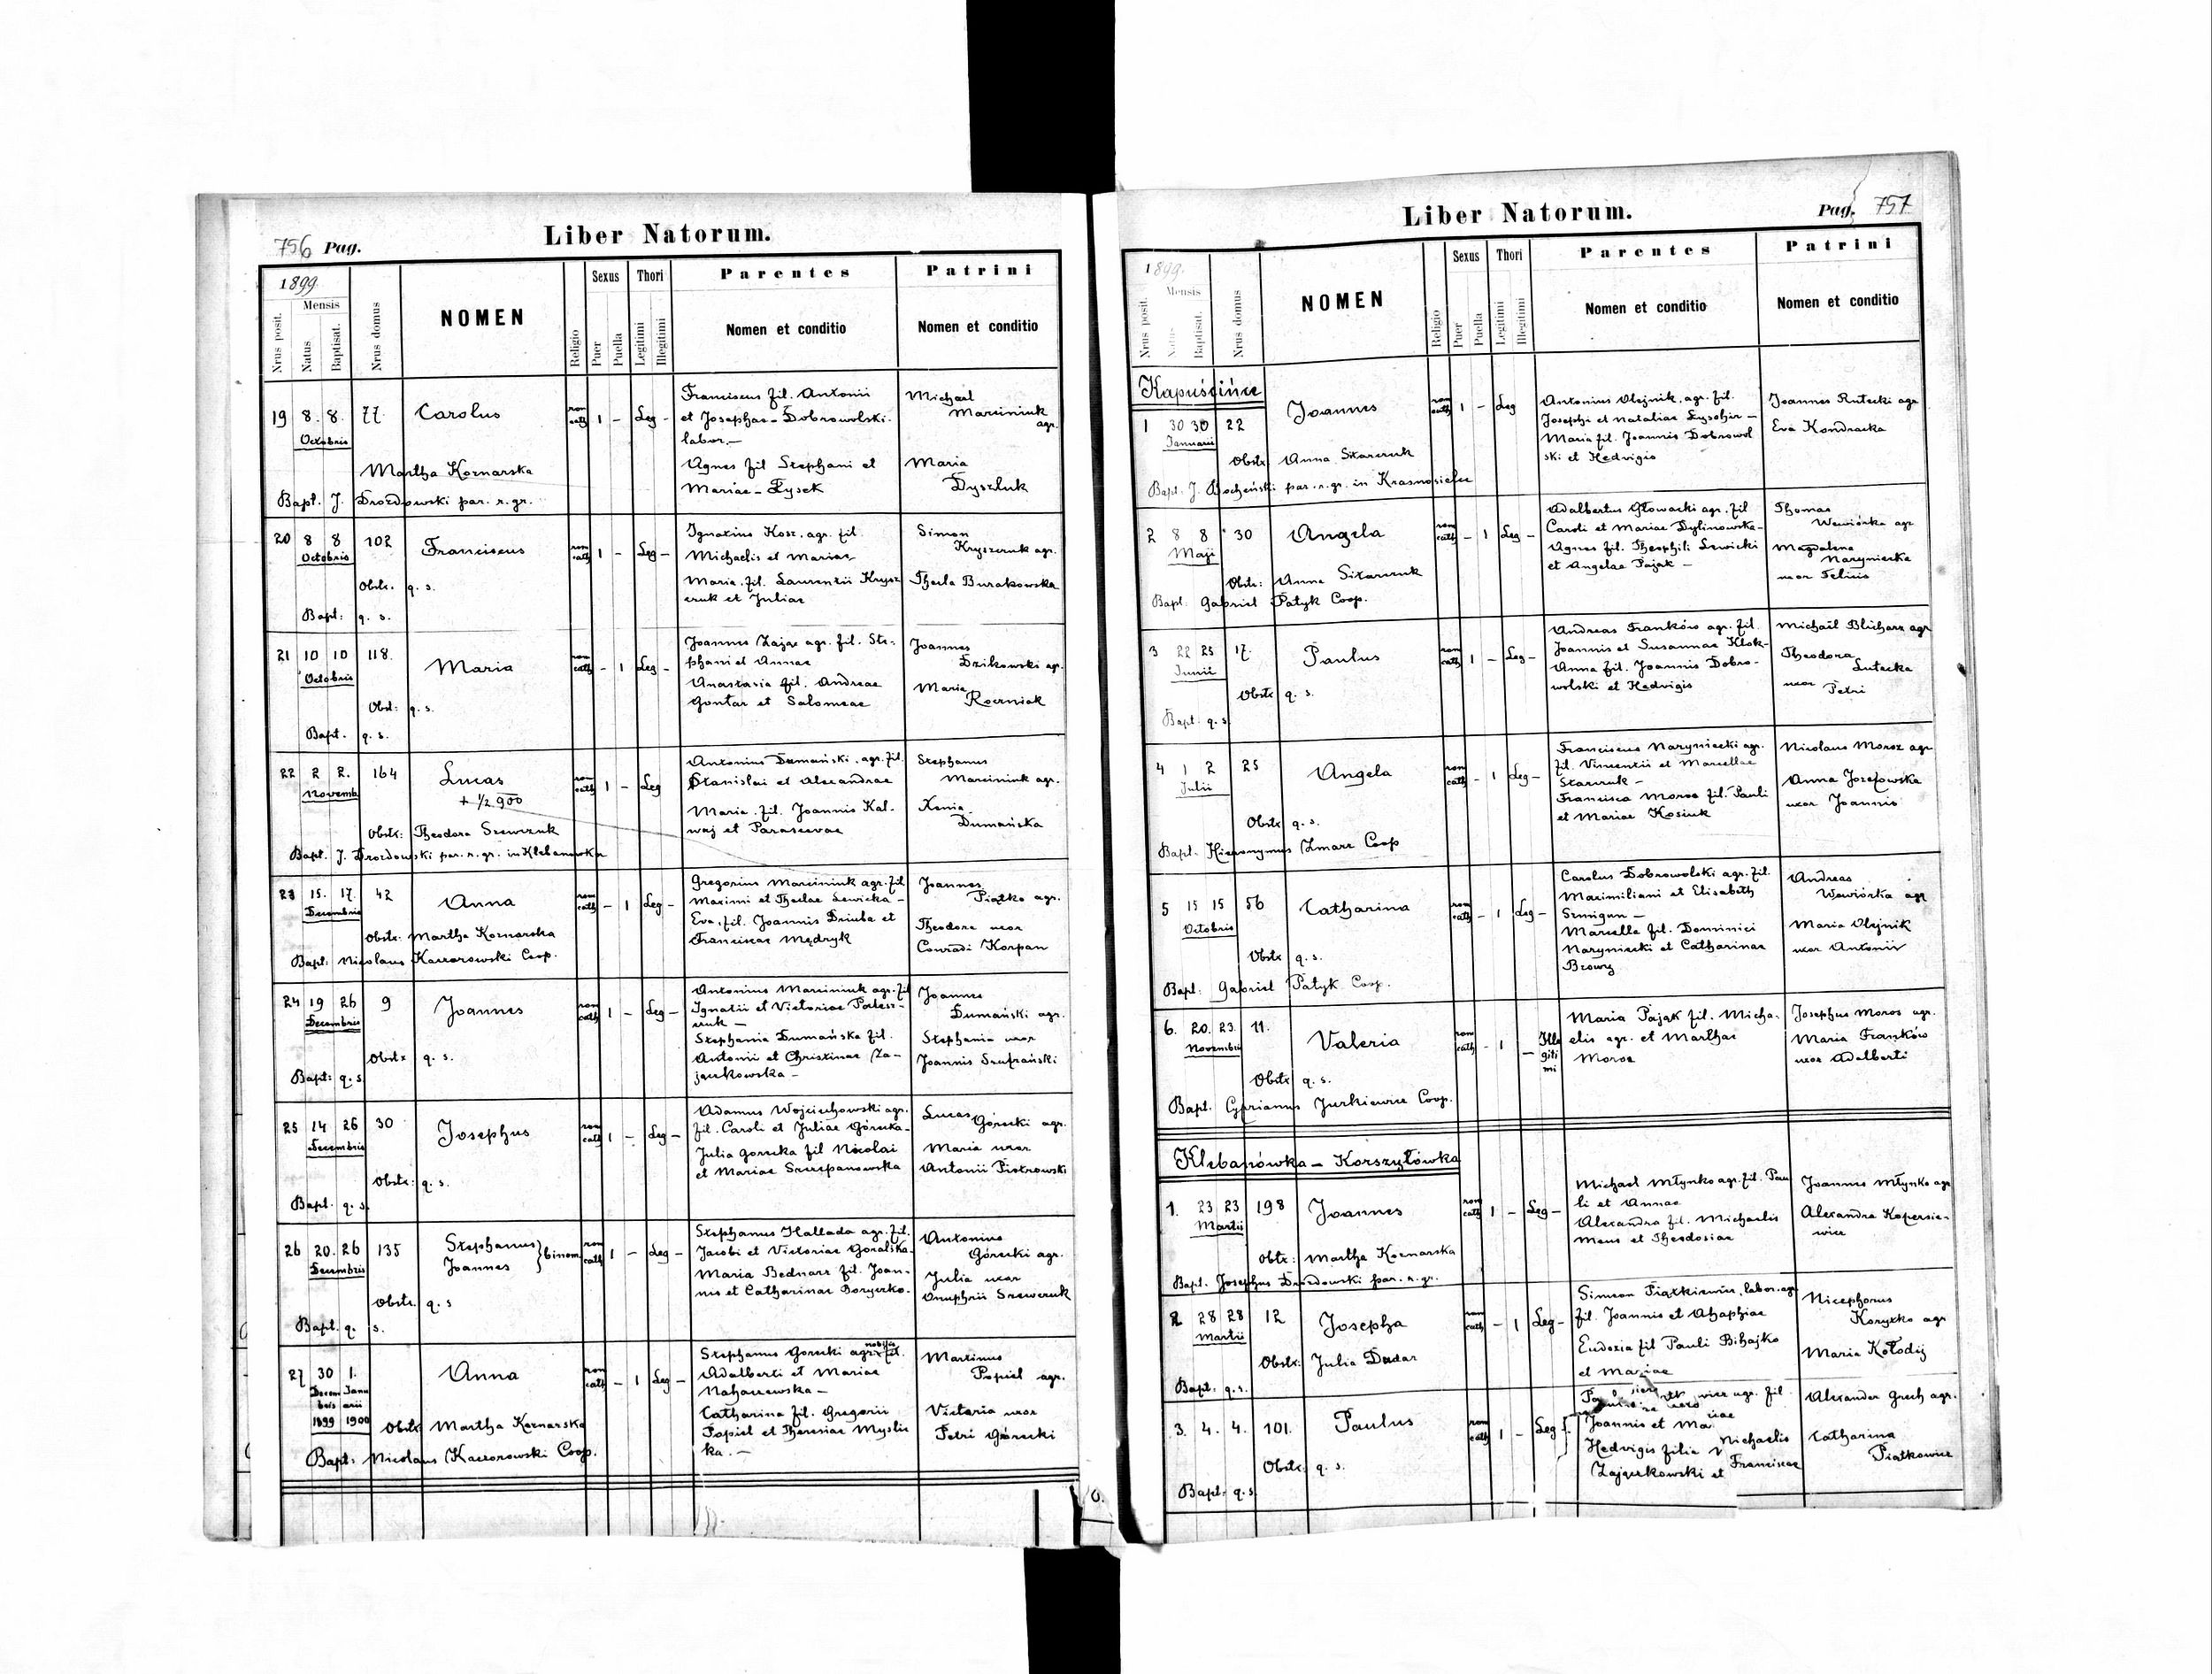 756 Pag.
Liber Natorum.
1899
Nrus posit.
Mensis
Natus
Baptisat.
Nrus domus
NOMEN
Religio
Sexus
Puer
Puella
Thori
Legitimi
Illegitimi
Parentes
Nomen et conditio
Patrini
Nomen et conditio
19 8. 8. 77 Carolus rom cath 1 - Leg -
Octobris
Martha Koznarska
Bapt. J. Drozdowski par. r. gr.
Franciscus fil. Antonii
et Josephae - Dobrowolski.
labor. -
Agnes fil Stephani et
Mariae - Łysek
Michael
Marciniuk
agr.
Maria
Dyszluk
20 8 8 102 Franciscus rom cath 1 - Leg -
Octobris
Obstr. q. s.
Bapt: q. s.
Ignatius Kosz, agr. fil.
Michaelis et Mariae
Maria fil. Laurentii Krysz
czuk et Juliae
Simon
Kryszczuk agr.
Thecla Burakowska
21 10 10 118. Maria rom cath - 1 Leg -
Octobris
Obst: q. s.
Bapt. q. s.
Joannes Zając agr. fil. Ste-
phani et Annae
Anastasia fil. Andreae
Gontar et Salomeae
Joannes
Dzikowski agr.
Maria
22 2 2. 164 Lucas rom cath 1 - Leg
Novemb.
+ 1/2 900
Obstr: Theodora Szewczuk
Bapt. J. Drozdowski par. r. gr. in Klebanowka
Antonius Dumański, agr. fil.
Stanislai et Alexandrae
Maria fil. Joannis Kal-
waj et Parascevae
Stephanus
Marciniuk agr.
Xenia
Dumańska
23 15. 17. 42 Anna rom cath - 1 Leg -
Decembris
Obstr: Martha Koznarska
Bapt: Nicolaus Kaczorowski Coop.
Gregorius Marciniuk agr. fil
Maximi et Theclae Lewicka -
Eva, fil. Joannis Dziuba et
Franciscae Mędryk
Joannes
Piątko agr.
Theodora uxor
Conradi Korpan
24 19 26 9 Joannes rom cath 1 - Leg -
Decembris
Obstr q. s.
Bapt: q. s.
Antonius Marciniuk agr. fil
Ignatii et Victoriae
Stephania Dumańska fil.
Antonii et Christinae Za-
jączkowska -
Joannes
Dumański agr.
Stephania uxor
Joannis Szafrański
25 14 26 30 Josephus rom cath 1 - Leg -
Decembris
Obstr: q. s.
Bapt. q. s.
Adamus Wojciechowski agr.
fil. Caroli et Juliae Górecka -
Julia Gorecka fil Nicolai
et Mariae Szczepanowska
Lucas Górecki agr.
Maria uxor
Antonii Piotrowski
26 20. 26 135 Stephanus } binom. rom cath 1 - Leg -
Joannes
Decembris
Obstr. q. s
Bapt. q. s.
Stephanus Hallada agr. fil.
Jacobi et Victoriae Goralska.
Maria Bednarz fil. Joan-
nis et Catharinae
Antonius
Górecki agr.
Julia uxor
Onuphrii Szewczuk
27 30 1. Anna rom cath - 1 Leg -
Decem Janu
bris arii
1899 1900
Obstr Martha Koznarska
Bapt: Nicolaus Kaczorowski Coop.
Stephanus Gorecki agr. nobilis fil.
Adalberti et Mariae
Nahaczewska -
Catharina fil. Gregorii
Popiel et Theresiae Myslic
ka. -
Martinus
Popiel agr.
Victoria uxor
Petri Górecki
Liber Natorum.
Pag. 757
1899.
Nrus posit.
Mensis
Natus
Baptisat.
Nrus domus
NOMEN
Religio
Sexus
Puer
Puella
Thori
Legitimi
Illegitimi
Parentes
Nomen et conditio
Patrini
Nomen et conditio
Kapuścińce
1 30 30 22 Joannes rom cath 1 - Leg
Januarii
Obstr Anna Skarczuk
Bapt. J. Bocheński par. r. gr. in Krasnosielce
Antonius Olejnik, agr. fil.
Josephi et Nataliae -
Maria fil. Joannis Dobrowol
ski et Hedvigis
Joannes Rutecki agr
Eva Kondracka
2 8 8 30 Angela rom cath - 1 Leg -
Maji
Obstr: Anna Sikarczuk
Bapt. Gabriel Patyk Coop.
Adalbertus Głowacki agr. fil
Caroli et Mariae Dylinowska -
Agnes fil. Theophili Lewicki
et Angelae Pająk -
Thomas
Wewiórka agr
Magdalena
Naryniecka
uxor Felicis
3 22 25 17. Paulus rom cath 1 - Leg -
Junii
Obstr q. s.
Bapt. q. s.
Andreas Franków agr. fil.
Joannis et Susannae Klok -
Anna fil. Joannis Dobro-
wolski et Hedvigis
Michaël Blicharz agr
Theodora
Lutecka
uxor Petri
4 1 2 25 Angela rom cath - 1 Leg -
Julii
Obstr q. s.
Bapt. Hieronymus Zmarz Coop
Franciscus Naryniecki agr.
fil. Vincentii et Marcellae
Skarczuk -
Francisca Moroz fil. Pauli
et Mariae Kosiuk
Nicolaus Moroz agr
Anna Jozefowska
uxor Joannis
5 15 15 56 Catharina rom cath - 1 Leg -
Octobris
Obstr q. s.
Bapt. Gabriel Patyk Coop.
Carolus Dobrowolski agr. fil.
Maximiliani et Elisabeth
Szmigun -
Marcella fil. Dominici
Naryniecki et Catharinae
Browy
Andreas
Wewiórka agr
Maria Olejnik
uxor Antonii
6. 20. 23. 11. Valeria rom cath - 1 - Ille
giti
mi
Novembris
Obstr q. s.
Bapt. Cyprianus Jurkiewicz Coop.
Maria Pająk fil. Micha-
elis agr. et Marthae
Moroz
Josephus Moros agr.
Maria Franków
uxor Adalberti
Klebanówka - Korszyłówka
1. 23 23 198 Joannes rom cath 1 - Leg -
Martii
Obtr: Martha Koznarska
Bapt. Josephus Drozdowski par. r. gr.
Michael Młynko agr. fil. Pau
li et Annae
Alexandra fil. Michaelis
et Theodosiae
Joannes Młynko agr
Alexandra Kopersie-
wicz
2 28 28 12 Josepha rom cath - 1 Leg -
Martii
Obstr: Julia Dudar
Bapt: q. s.
Simeon Piątkiewicz, labor. agr
fil. Joannis et Ahaphiae
Eudoxia fil Pauli Bihajko
et Mariae
Nicephorus
Koryzko agr
Maria Kołodij
3. 4. 4. 101. Paulus rom cath 1 - Leg
Obstr. q. s.
Bapt: q. s.
agr. fil
Joannis et
Hedvigis filia Michaelis
Zajączkowski et Franciscae
Alexander Grech agr.
Catharina
Piatkowicz